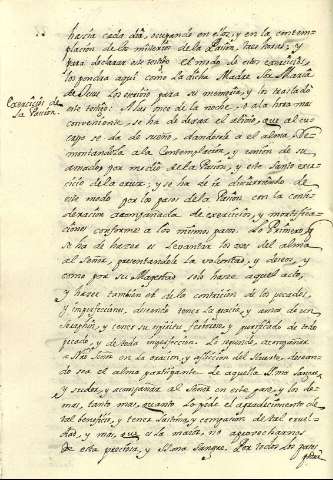 hasta cada dia, ocupando en eloz, y en la contem-
placion de los misterios de la Passion, tres horas; y
para declarar este testigo el modo de estos exercicios,
los pondra aqui como la dicha Madre Sor Maria
de Jesus los escrivio para su memoria, y los traslado
este testigo: A las once de la noche, o a la hora mas
Exercicios de
la Passion.
conveniente, se ha de dexar el alivio, que al cu-
erpo se da de sueño, dandosele a el alma. Re-
montandola a la Contemplacion, y union de su
amado, por medio de la Passion, y este santo exer-
cicio de la cruz; y se ha de ir discurriendo de
este modo por los pasos de la Passion con la consi-
deracion acompañada de exercicios, y mortifica-
ciones conforme a los mismos pasos. Lo Primero, q
se ha de hacer es levantar los ojos del alma
al Señor, presentandole la voluntad, y deseos, y
como por su Magestad solo hace aquel acto,
y hacer tambien de la contricion de los pecados,
y imperfecciones, deseando tener la gracia, y amor de un
Seraphin, y tener su espiritu fervoroso, y purificado de todo
pecado, y de toda imperfeccion. Lo segundo, acompañar
a N̄ro Señor en la oracion, y afliccion del Huerto, desean-
do sea el alma participante de aquella Divina sangre,
y sudor, y acompañar al Señor en este paso, y los de-
mas, tanto mas, quanto lo pide el agradecimiento de
tal beneficio, y tener lastima, y compasion de tal cruel-
dad, y mas, que es la maior, no aprovecharnos
de esta preciosa, y Divina Sangre. Por todos los pasos